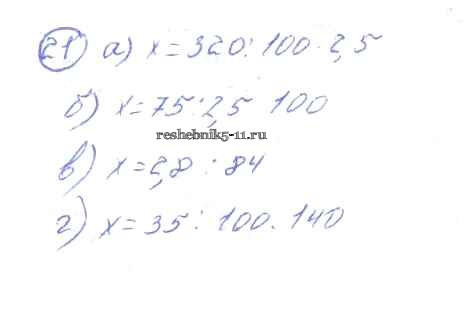 21 а) x = 320 : 100 · 2,5
б) x = 75 : 2,5 100
reshebnik5-11.ru
в) x = 2,8 : 84
г) x = 35 : 100 . 140